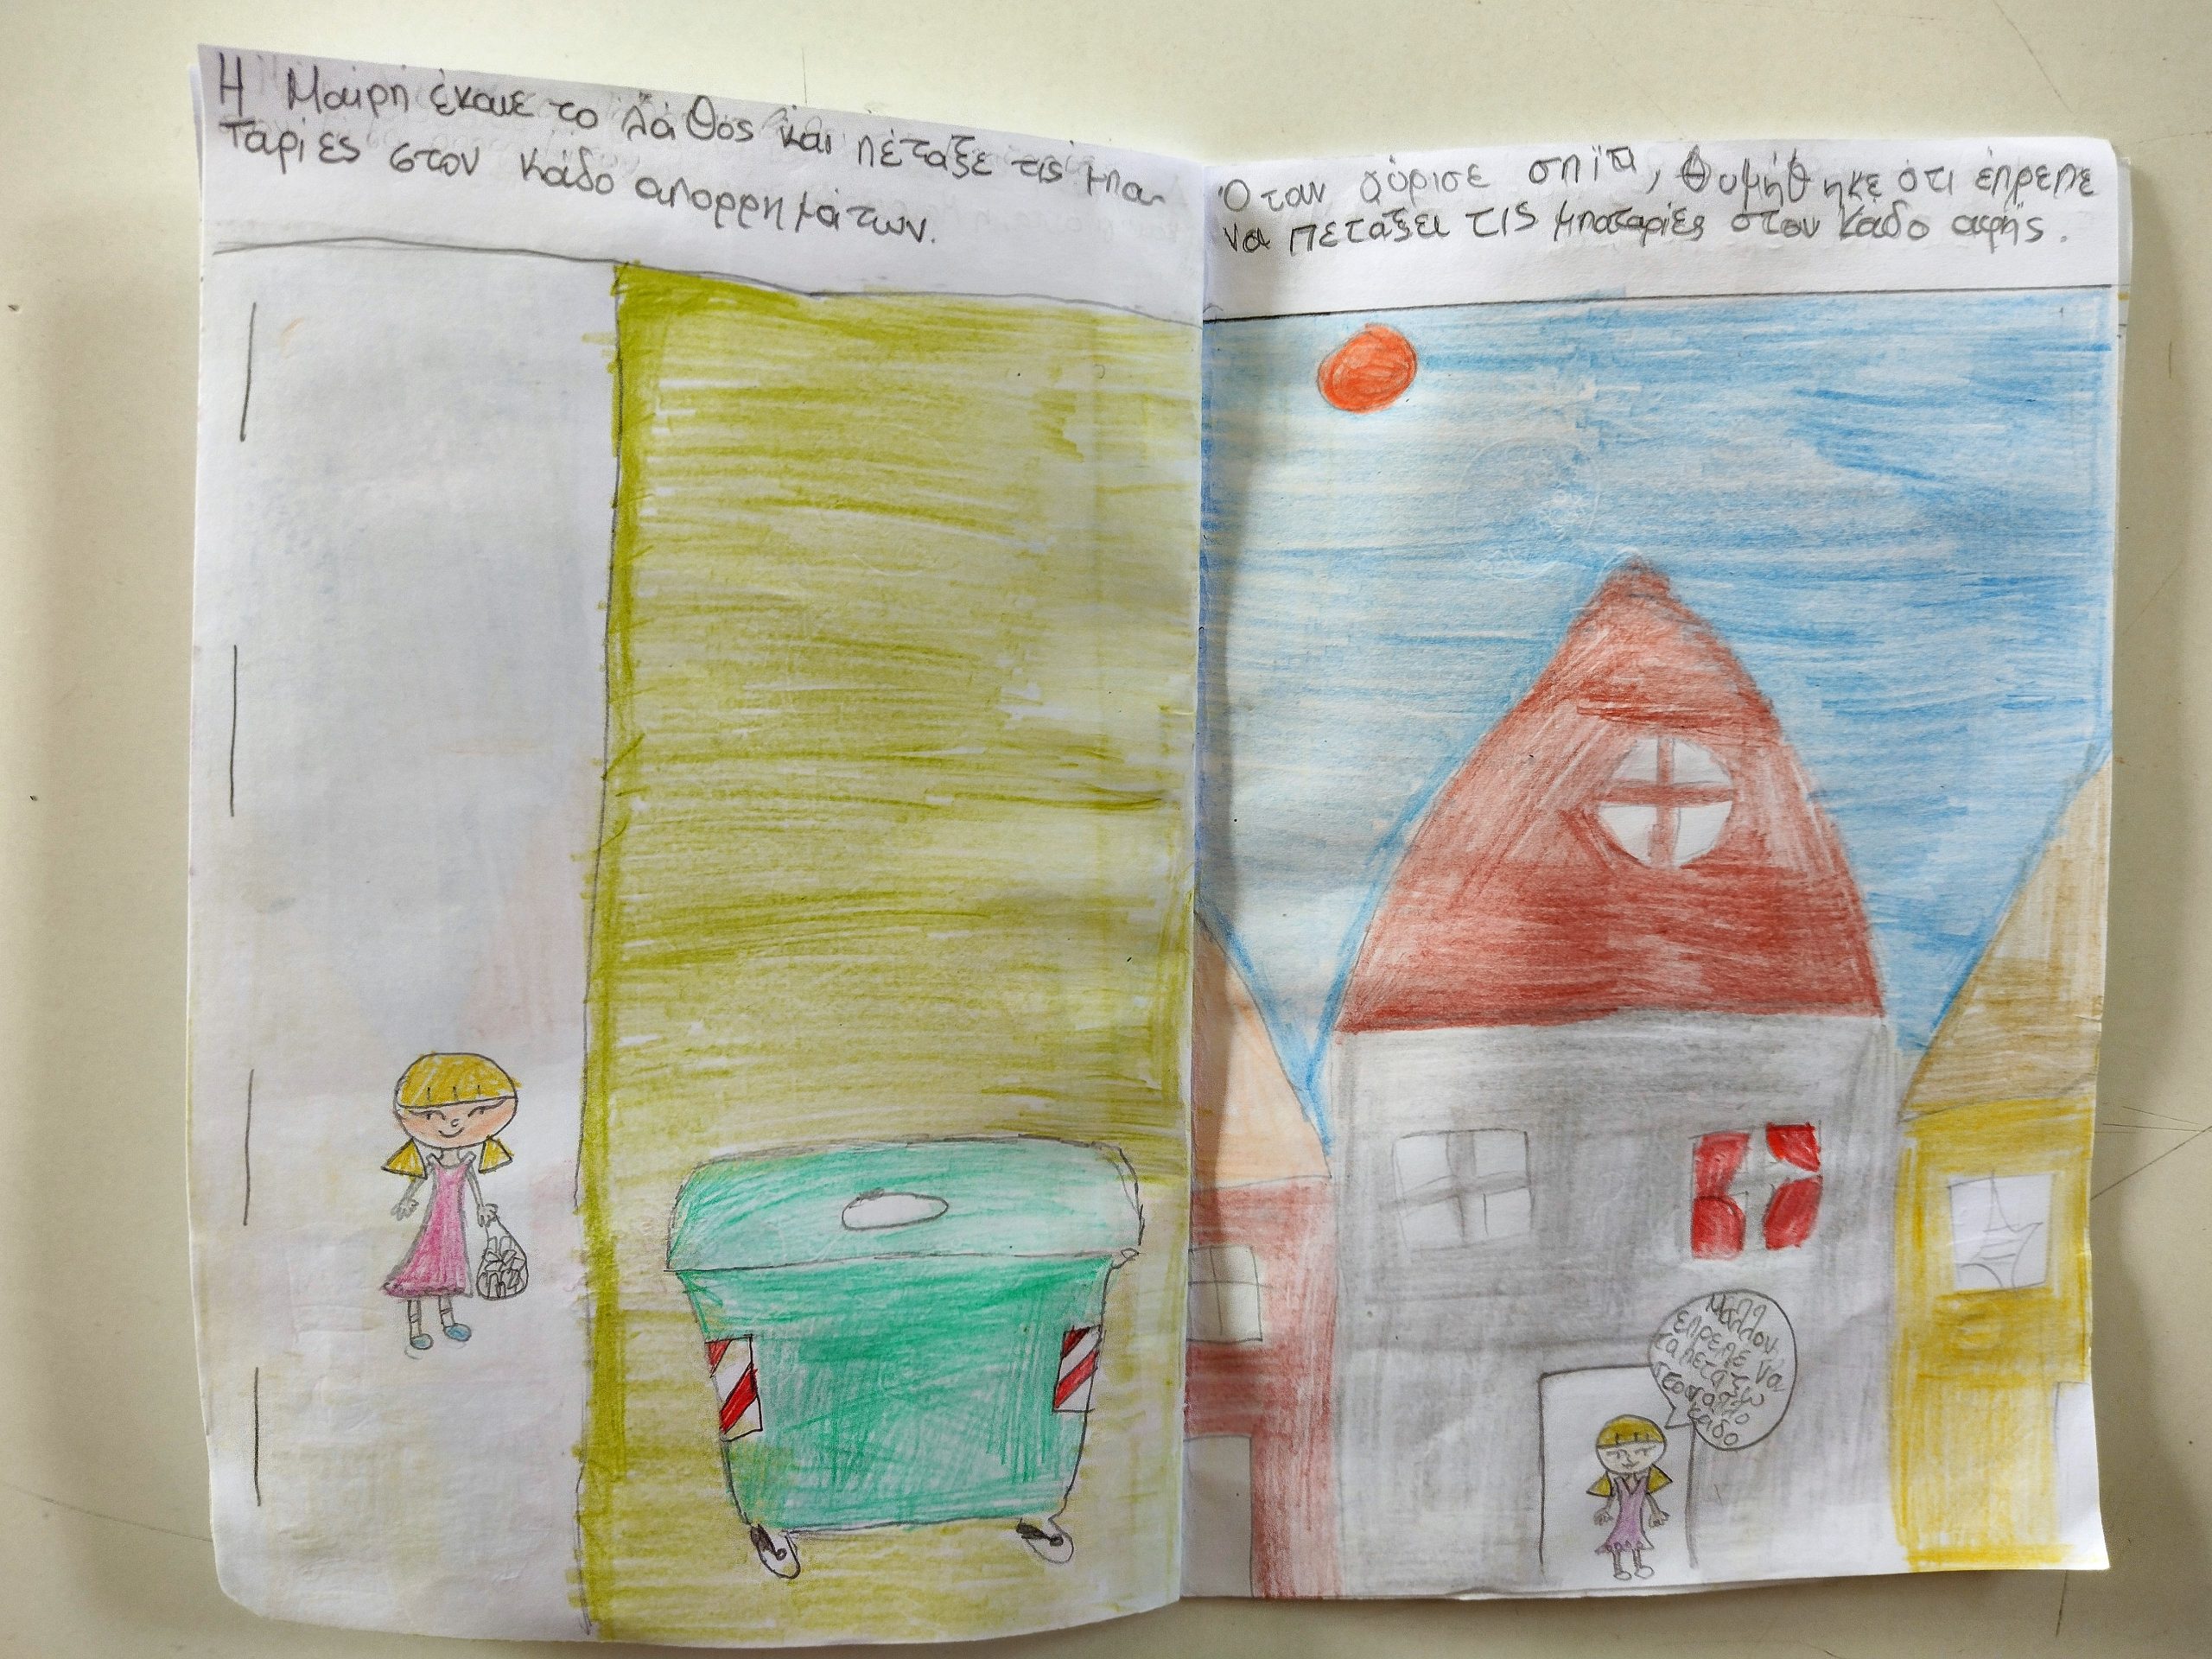 Η Μαίρη έκανε το λάθος και πέταξε τις μπα-
ταρίες στον κάδο απορρημάτων.
Όταν γύρισε σπίτι, θυμήθηκε ότι έπρεπε
να πετάξει τις μπαταρίες στον κάδο αφής.
Μάλλον
έπρεπε να
τα πετάξω
κάδο